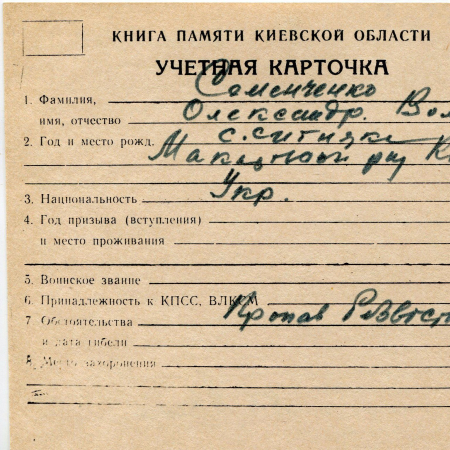 КНИГА ПАМЯТИ КИЕВСКОЙ ОБЛАСТИ
УЧЕТНАЯ КАРТОЧКА
1. Фамилия, Семенченко
имя, отчество Олександр
2. Год и место рожд. с.
Макар
3. Национальность Укр.
4. Год призыва (вступления)
и место проживания
5. Воинское звание
6. Принадлежность к КПСС, ВЛКСМ
7 Обстоятельства Пропав безвест
и дата гибели
8. Место захоронения